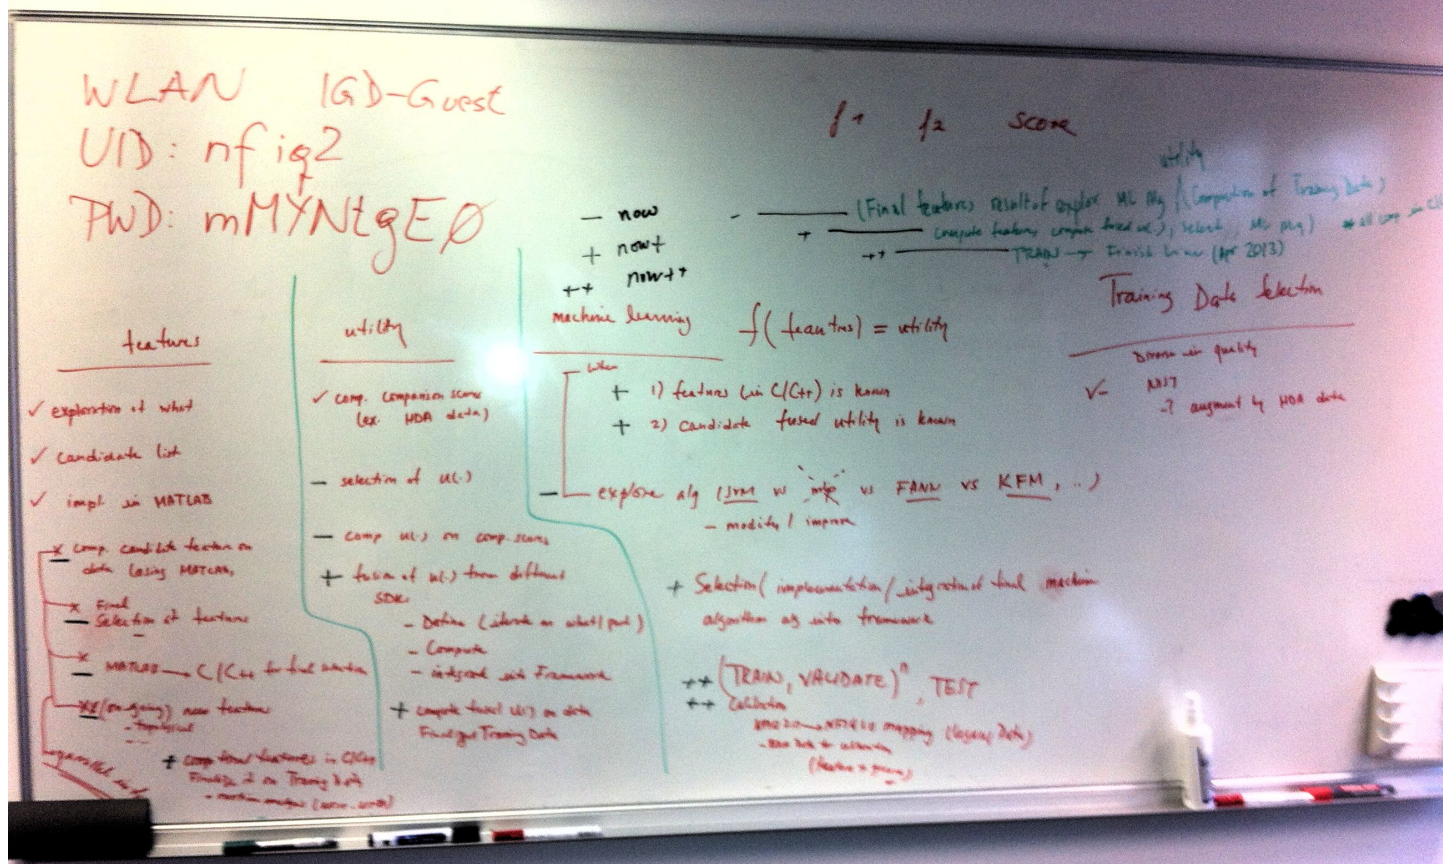 WLAN IGD-Guest
UID: nfiq2
PWD: mMYNtgEØ
f1 f2 score
utility
- now
+ now+
++ now++
- (Final features result of explor ML Alg / Composition of Training Data)
+ compute features, compute fused u(.), select ML Alg)
++ TRAIN → Finish Line (Apr 2013)
features
✓ exploration of what
✓ candidate list
✓ impl. in MATLAB
x comp. candidate feature on
data (using MATLAB,
x Final
- Selection of features
x
- MATLAB → C/C++ for final
xx (on-going) new feature
+ comp final features in C/C++
Finalize it on Training Data
utility
✓ comp. comparison scores
(ex. HDA data)
- selection of u(.)
- comp u(.) on comp. scores
+ fusion of u(.) from different
SDK
- Define (iterate on what/
- Compute
- integrand into Framework
+ compute fused u(.) on data
Training Data
machine learning f(feautres) = utility
when
+ 1) features (in C/C++) is known
+ 2) candidate fused utility is known
- explore alg (SVM vs mlp vs FANN vs KFM, ..)
- modify / improve
+ Selection / implementation / integration of final machine
algorithm alg into framework
++ (TRAIN, VALIDATE)ⁿ, TEST
++ Calibration
mapping (legacy Data)
Training Data Selection
Diverse in quality
✓- NIST
-? augment by HDA data